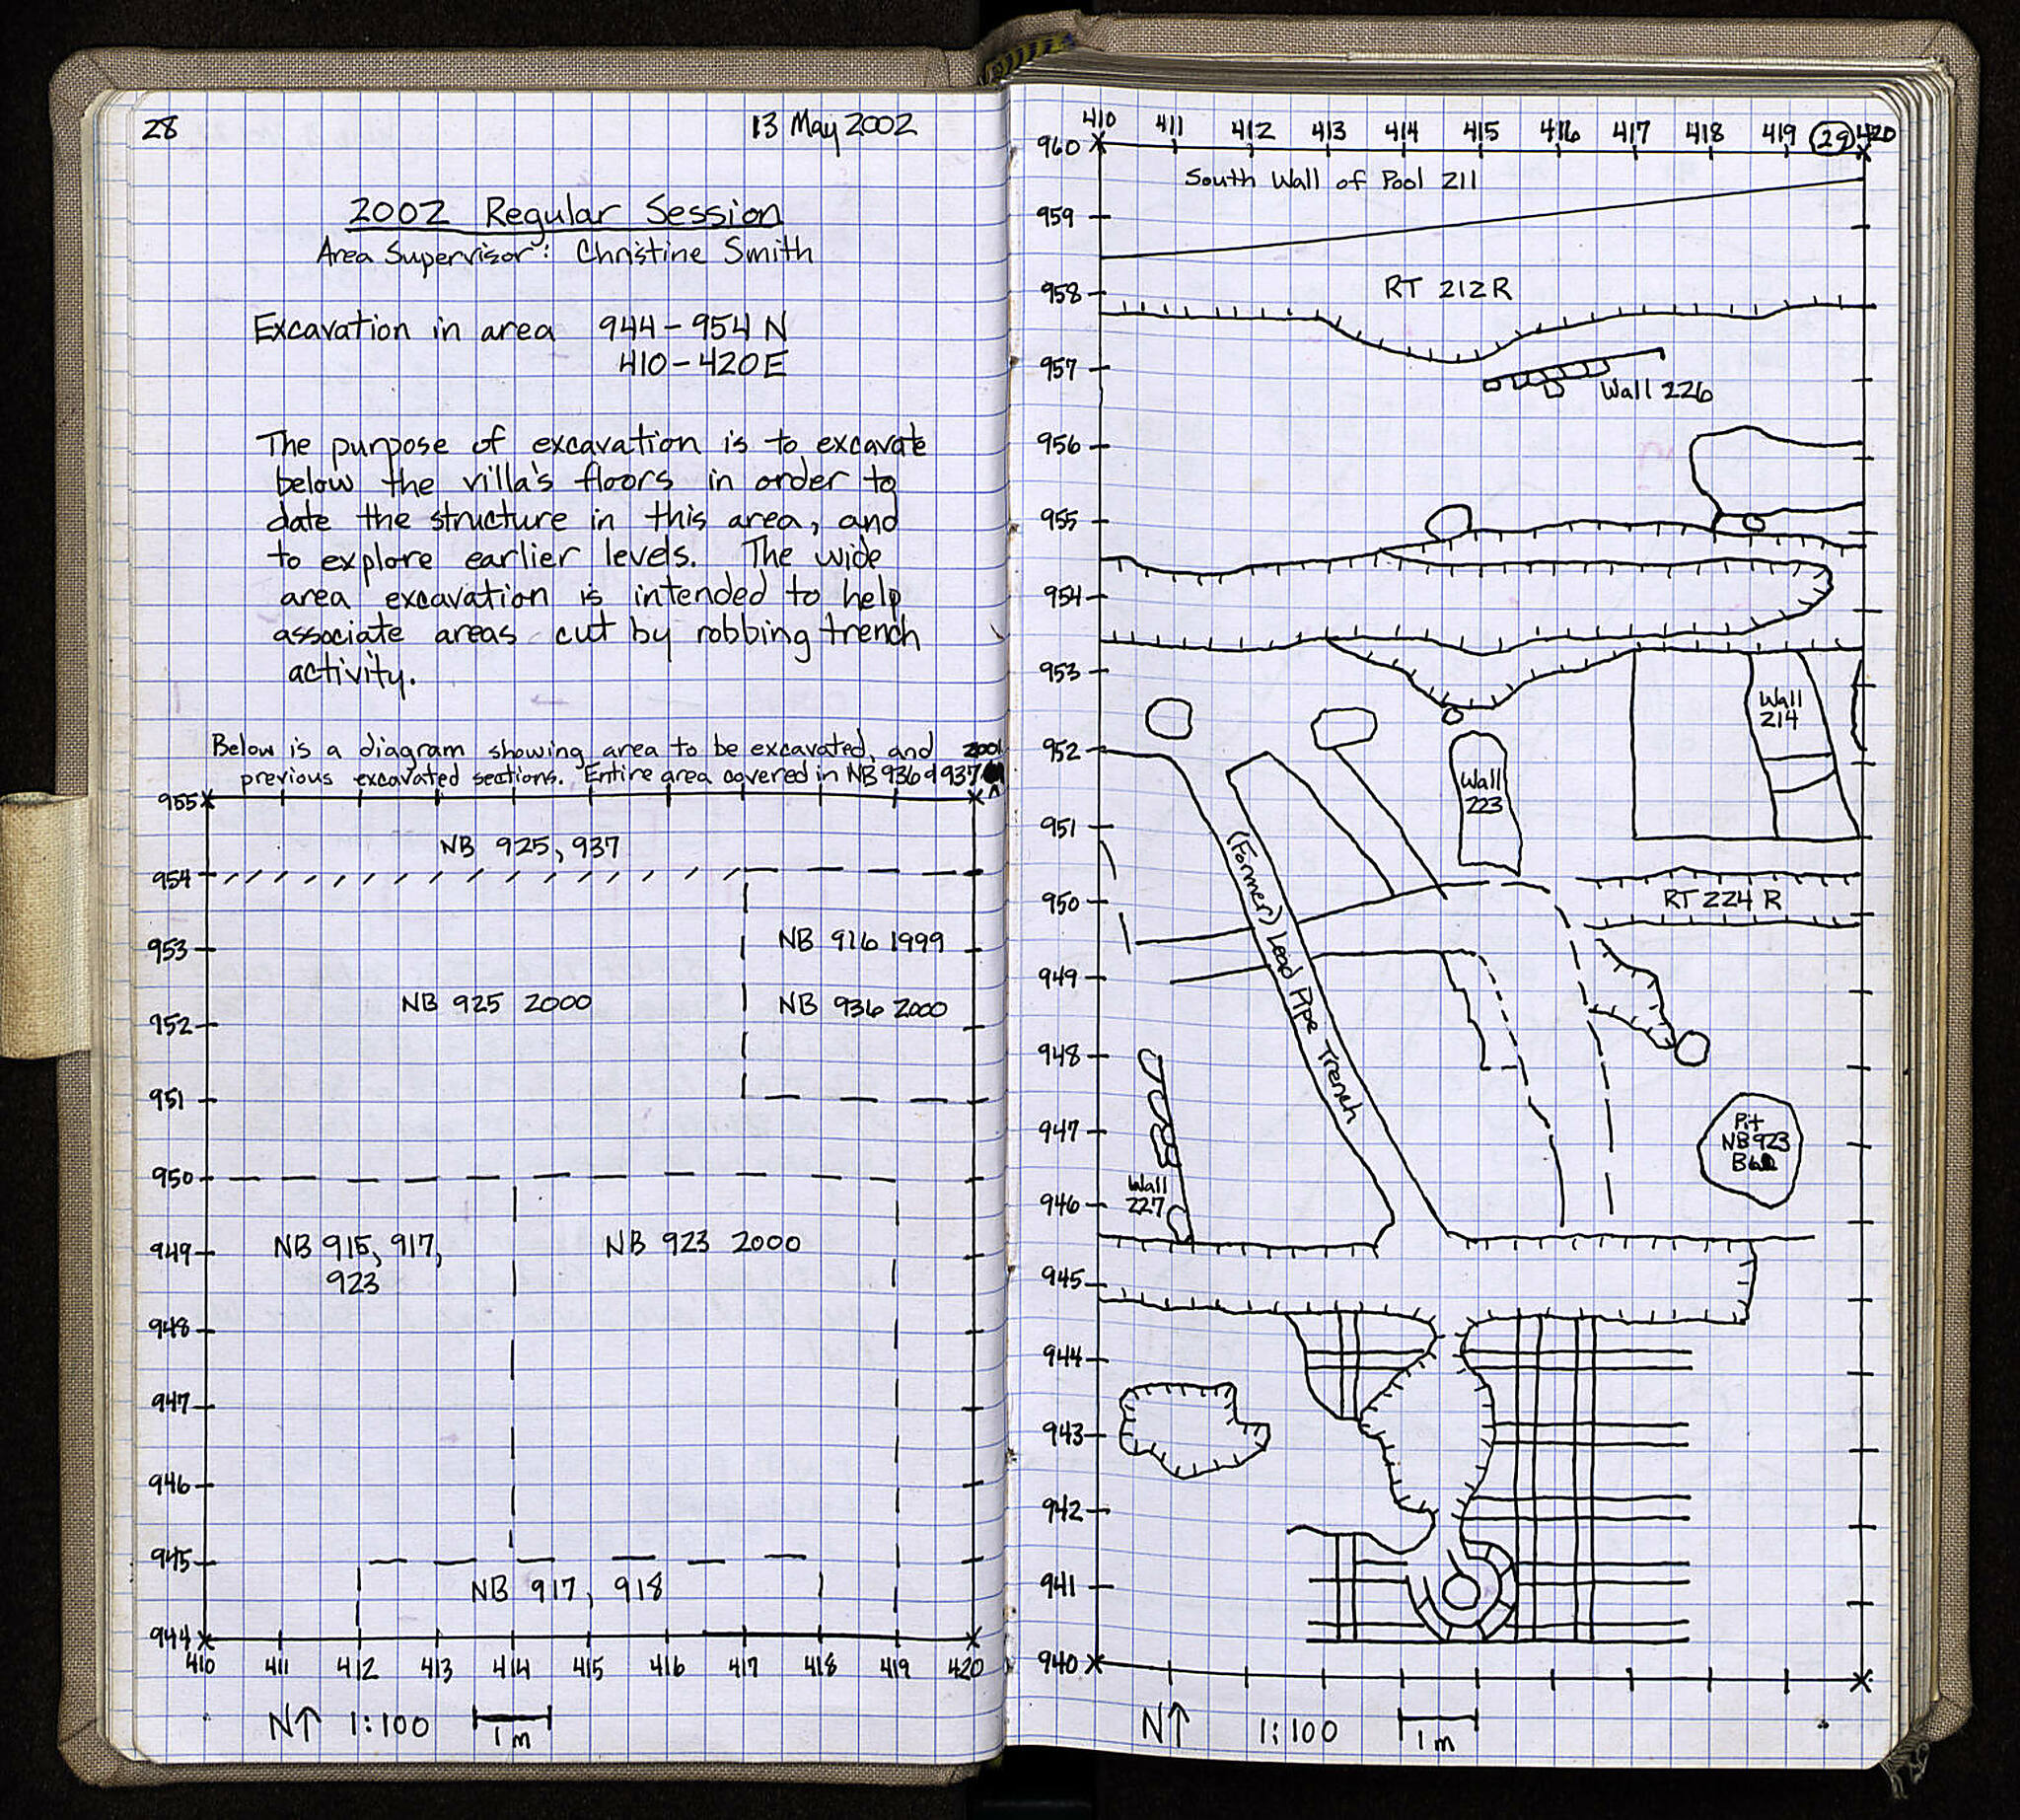 28
13 May 2002
2002 Regular Session
Area Supervisor: Christine Smith
Excavation in area 944-954 N
410-420E
The purpose of excavation is to excavate
below the villa's floors in order to
date the structure in this area, and
to explore earlier levels. The wide
area excavation is intended to help
associate areas cut by robbing trench
activity.
Below is a diagram showing area to be excavated, and 2001
previous excavated sections. Entire area covered in NB 936 & 937
955
NB 925, 937
954
953
NB 916 1999
NB 925 2000
NB 936 2000
952
951
950
949
NB 915, 917,
923
NB 923 2000
948
947
946
945
NB 917, 918
944
410 411 412 413 414 415 416 417 418 419 420
N↑ 1:100
1 m
410 411 412 413 414 415 416 417 418 419 29 420
960
South Wall of Pool 211
959
958
RT 212 R
957
Wall 226
956
955
954
953
Wall
214
952
Wall
223
951
950
RT 224 R
(Former) Lead Pipe Trench
949
948
947
Pit
NB 923
Wall
227
946
945
944
943
942
941
940
N↑ 1:100
1 m